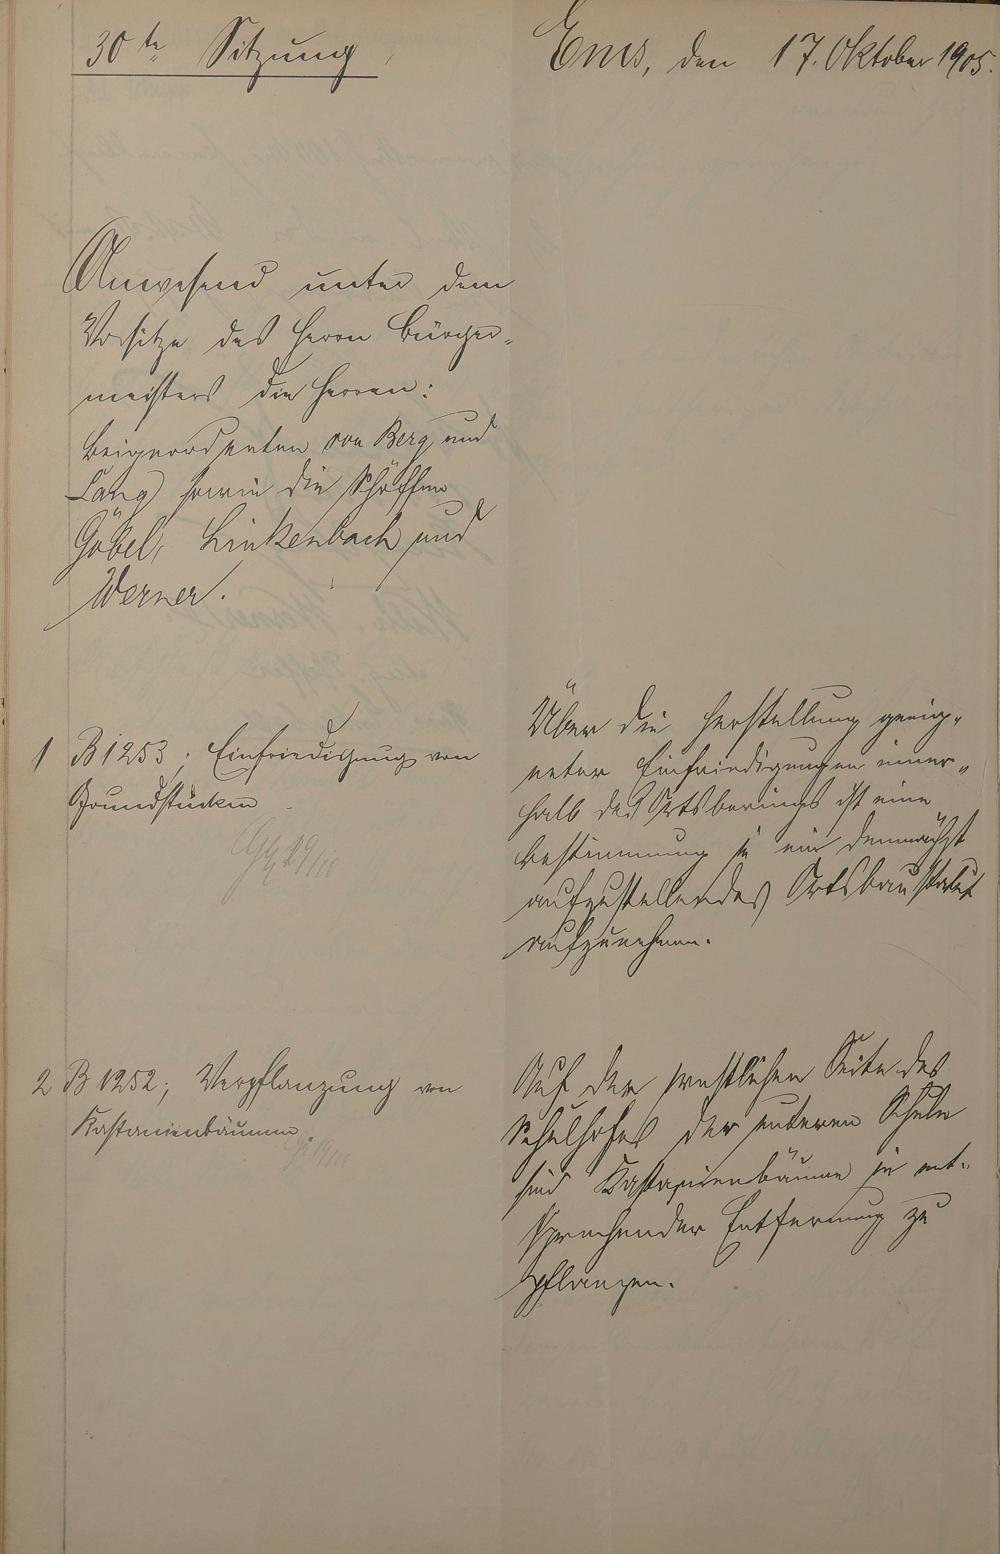 30te Sitzung
Ems, den 17. Oktober 1905.
Anwesend unter dem
Vorsitze des Herrn Bürger-
meisters die Herren:
Beigeordneten von Berg und
Lang sowie die Schöffen
Göbel, Linkenbach und
Werner.
1 B 1253; Einfriedigung von
Grundstücken
19/10
Über die Herstellung geeig-
neter Einfriedigungen inner-
halb des Ortsberings ist eine
Bestimmung in ein demnächst
aufzustellendes Ortsbaustatut
aufzunehmen.
2 B 1252; Verpflanzung von
Kastanienbäumen.
19/10
Auf der westlichen Seite des
Schulhofes der unteren Schule
sind Kastanienbäume in ent-
sprechender Entfernung zu
pflanzen.